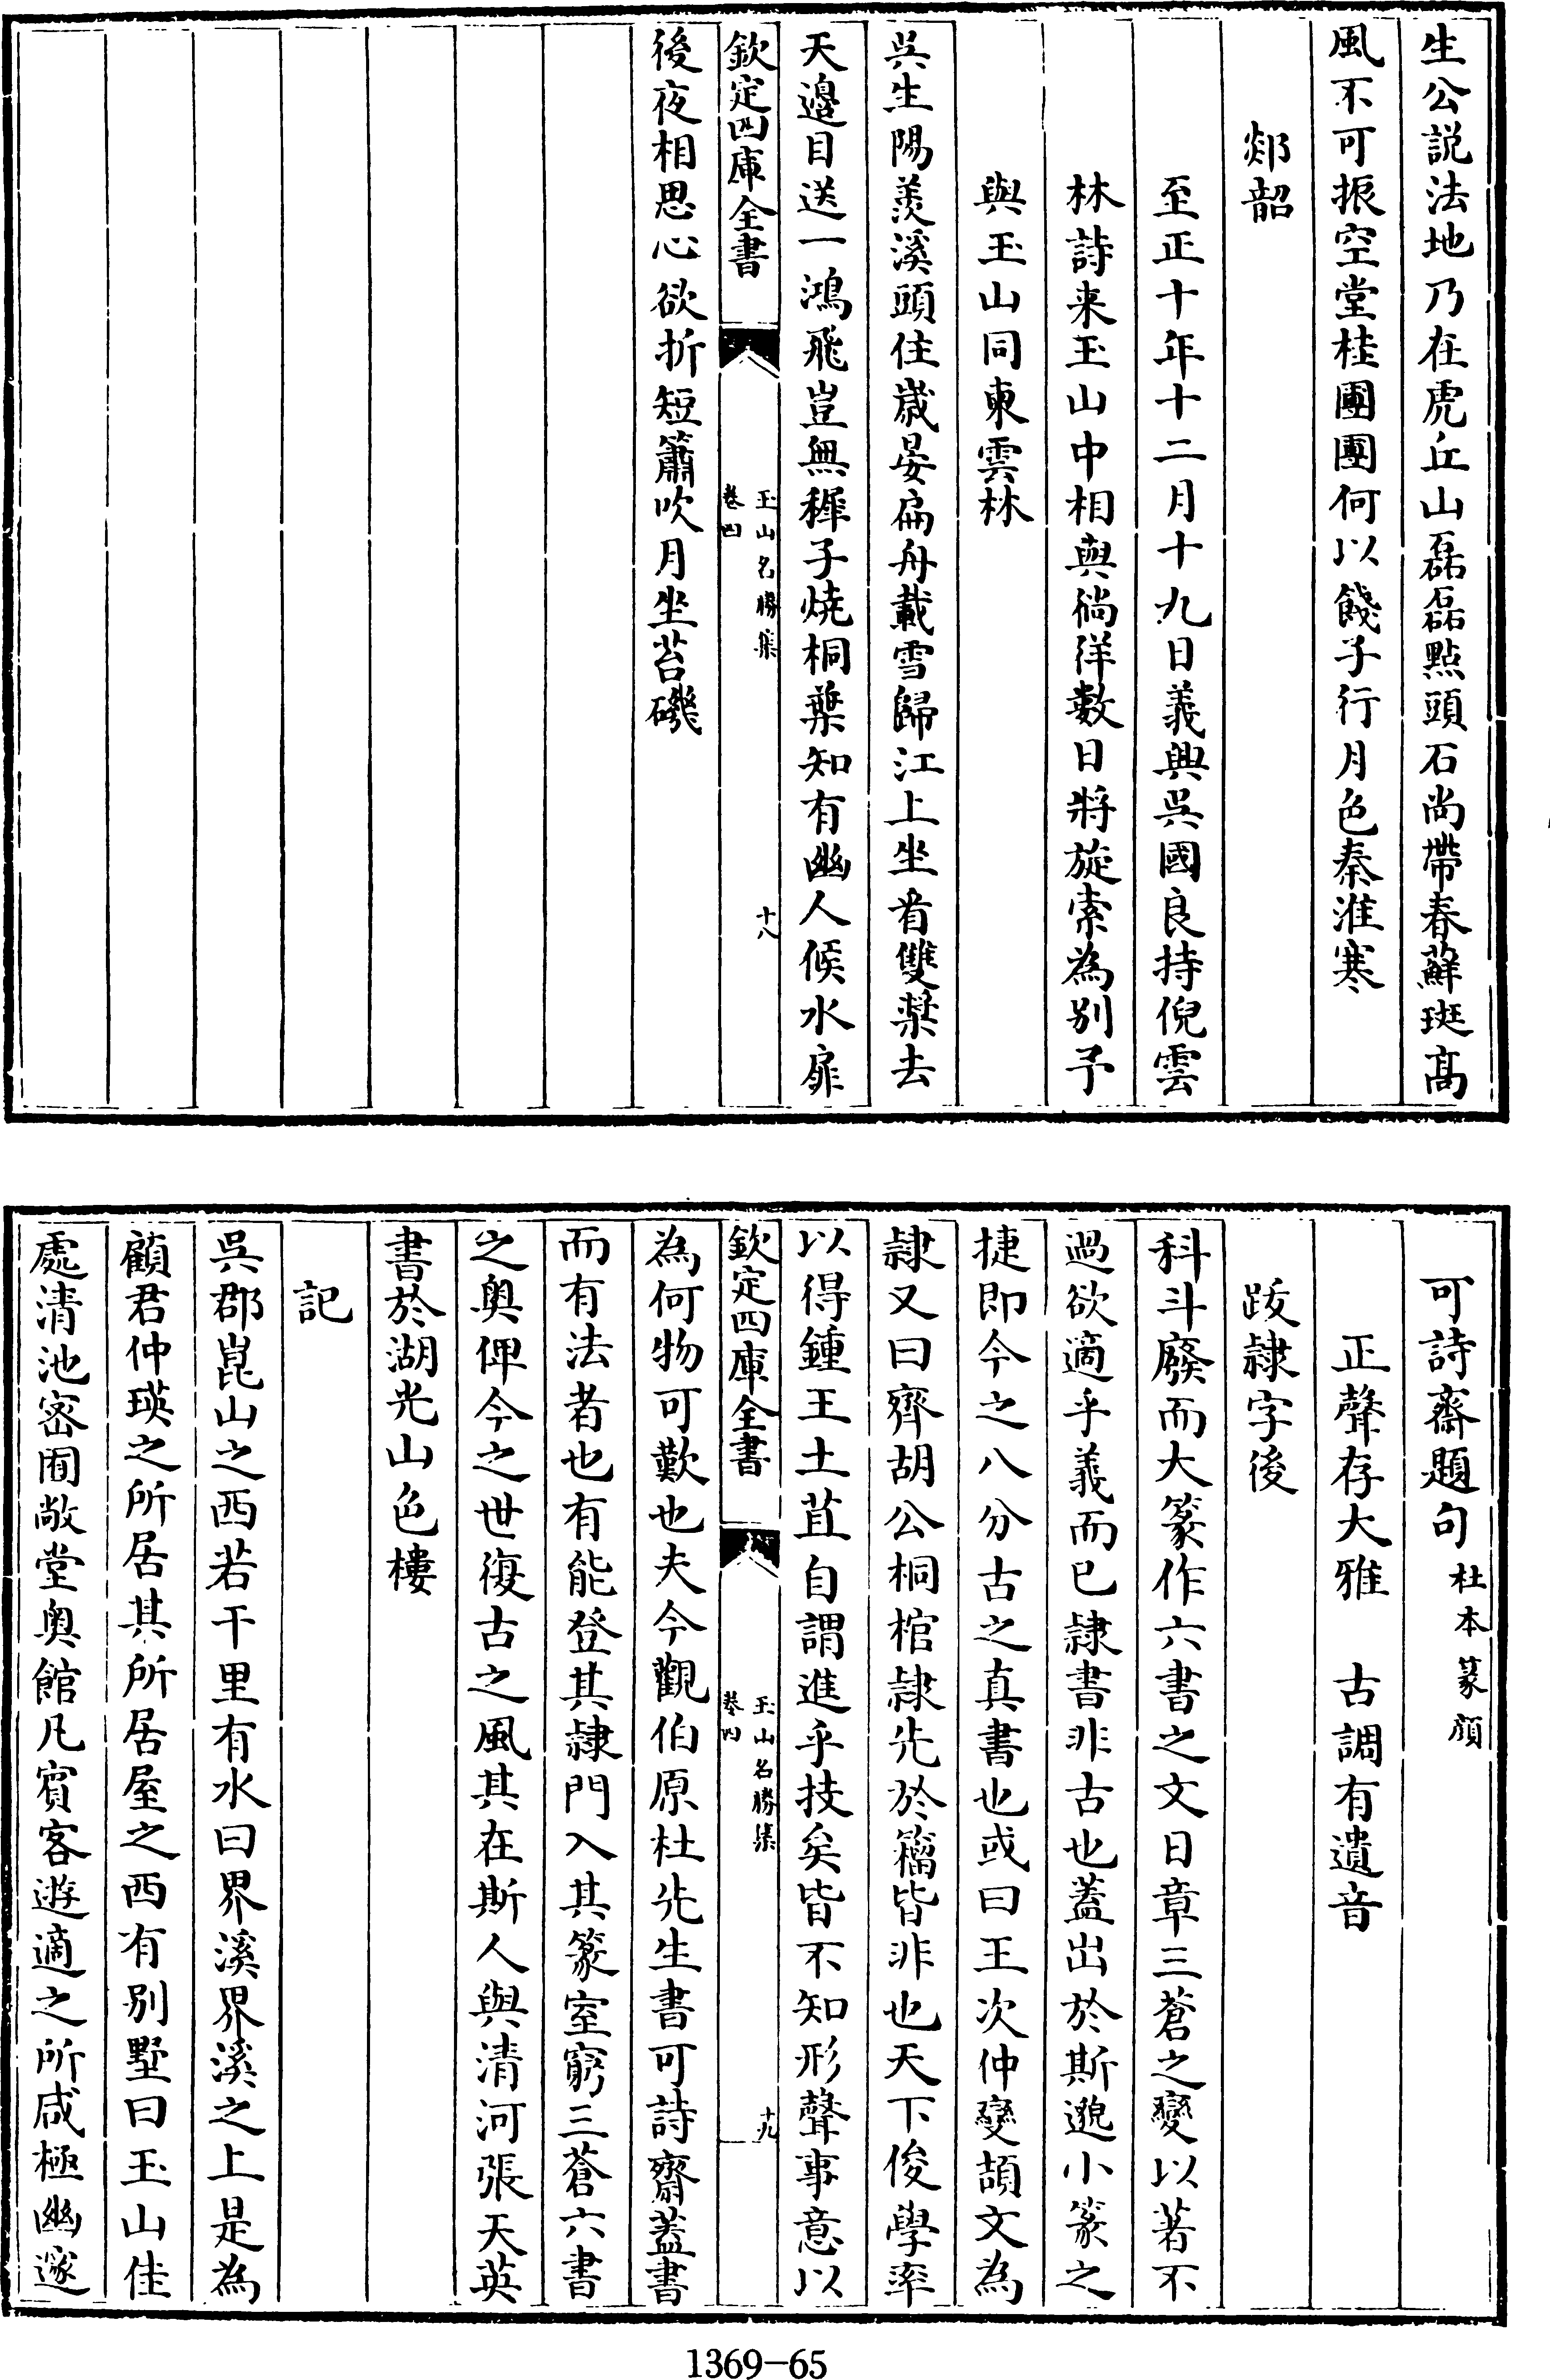 生公説法地乃在虎丘山磊磊點頭石尚帶春蘚斑髙
風不可振空堂桂團團何以餞子行月色秦淮寒
郯韶
至正十年十二月十九日義興吳國良持倪雲
林詩来玉山中相與徜徉數日將旋索為别予
與玉山同柬雲林
吳生陽羨溪頭住嵗晏扁舟載雪歸江上坐看雙槳去
天邉目送一鴻飛豈無稺子燒桐葉知有幽人候水扉
欽定四庫全書
玉山名勝集
卷四
十八
後夜相思心欲折短簫吹月坐苔磯
可詩齋題句 杜本篆顔
正聲存大雅 古調有遺音
跋隷字後
科斗廢而大篆作六書之文日章三蒼之變以著不
過欲適乎義而已隷書非古也蓋出於斯邈小篆之
捷即今之八分古之真書也或曰王次仲變頡文為
隷又曰齊胡公桐棺隷先於籀皆非也天下俊學率
以得鍾王土苴自謂進乎技矣皆不知形聲事意以
欽定四庫全書
玉山名勝集
卷四
十九
為何物可歎也夫今觀伯原杜先生書可詩齋蓋書
而有法者也有能登其隷門入其篆室窮三蒼六書
之奥俾今之世復古之風其在斯人與清河張天英
書於湖光山色樓
記
吳郡崑山之西若干里有水曰界溪界溪之上是為
顧君仲瑛之所居其所居屋之西有别墅曰玉山佳
處清池宻囿敞堂奥館凡賓客遊適之所咸極幽邃
1369-65